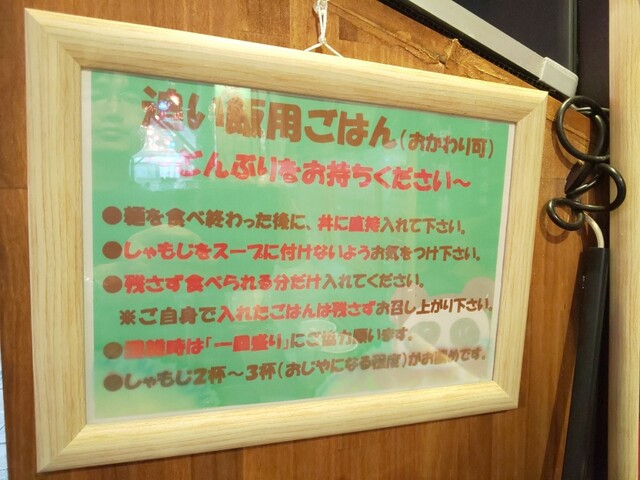 追い飯用ごはん(おかわり可)
どんぶりをお持ちください～
●麺を食べ終わった後に、丼に直接入れて下さい。
●しゃもじをスープに付けないようお気をつけ下さい。
●残さず食べられる分だけ入れてください。
※ご自身で入れたごはんは残さずお召し上がり下さい。
●混雑時は「一回盛り」にご協力願います。
●しゃもじ2杯～3杯(おじやになる程度)がお薦めです。